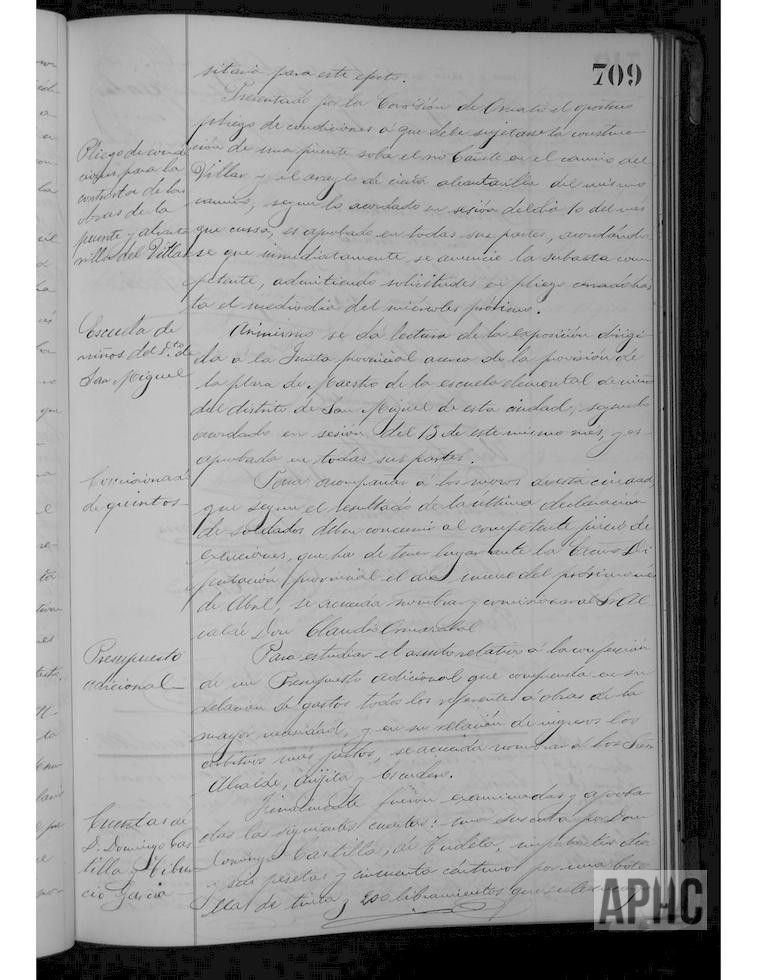 709
sitaria para este efecto.
Presentado por la Comisión de Ornato el oportuno
pliego de condiciones á que debe sujetarse la construc-
ción de una puente sobre el rio en el camino del
Villar y el arreglo de cierta alcantarilla del mismo
camino, segun lo acordado en sesión del dia 10 del mes
que cursa, es aprobado en todas sus partes, acordándo-
se que inmediatamente se anuncie la subasta com-
petente, admitiendo solicitudes en pliego cerrado has-
ta el mediodia del miércoles próximo.
Pliego de condi-
ciones para la
contrata de las
obras de la
puente y alcanta-
rilla del Villar
Asimismo se dá lectura de la exposición dirigi-
da á la Junta provincial acerca de la provisión de
la plaza de Maestro de la escuela elemental de niños
del distrito de San Miguel de esta ciudad, segun lo
acordado en sesión del 13 de este mismo mes, y es
aprobada en todas sus partes.
Escuela de
niños del D.to de
San Miguel
Para acompañar á los mozos de esta ciudad
que segun el resultado de la última declaración
de soldados deben concurrir al competente juicio de
exenciones, que ha de tener lugar ante la Excma Di-
putación provincial el dia nueve del próximo mes
de Abril, se acuerda nombrar y comisionar al Sr Al
calde Don Claudio
Comisionado
de quintos
Para estudiar el asunto relativo á la confección
de un Presupuesto adicional que comprenda en su
relación de gastos todos los referentes á obras de la
mayor necesidad, y en su relación de ingresos los
arbitrios mas justos, se acuerda nombrar á los Sres
Alcalde, y Escudero.
Presupuesto
adicional
Finalmente fueron examinadas y aproba-
das las siguientes cuentas: una suscrita por Don
Domingo Castilla, de Tudela, importante diez
y seis pesetas y cincuenta céntimos por una bote-
lla de tinta y 200 libramientos que se le
Cuentas de
D. Domingo Cas
tilla y Tibur-
cio Garcia
APHC